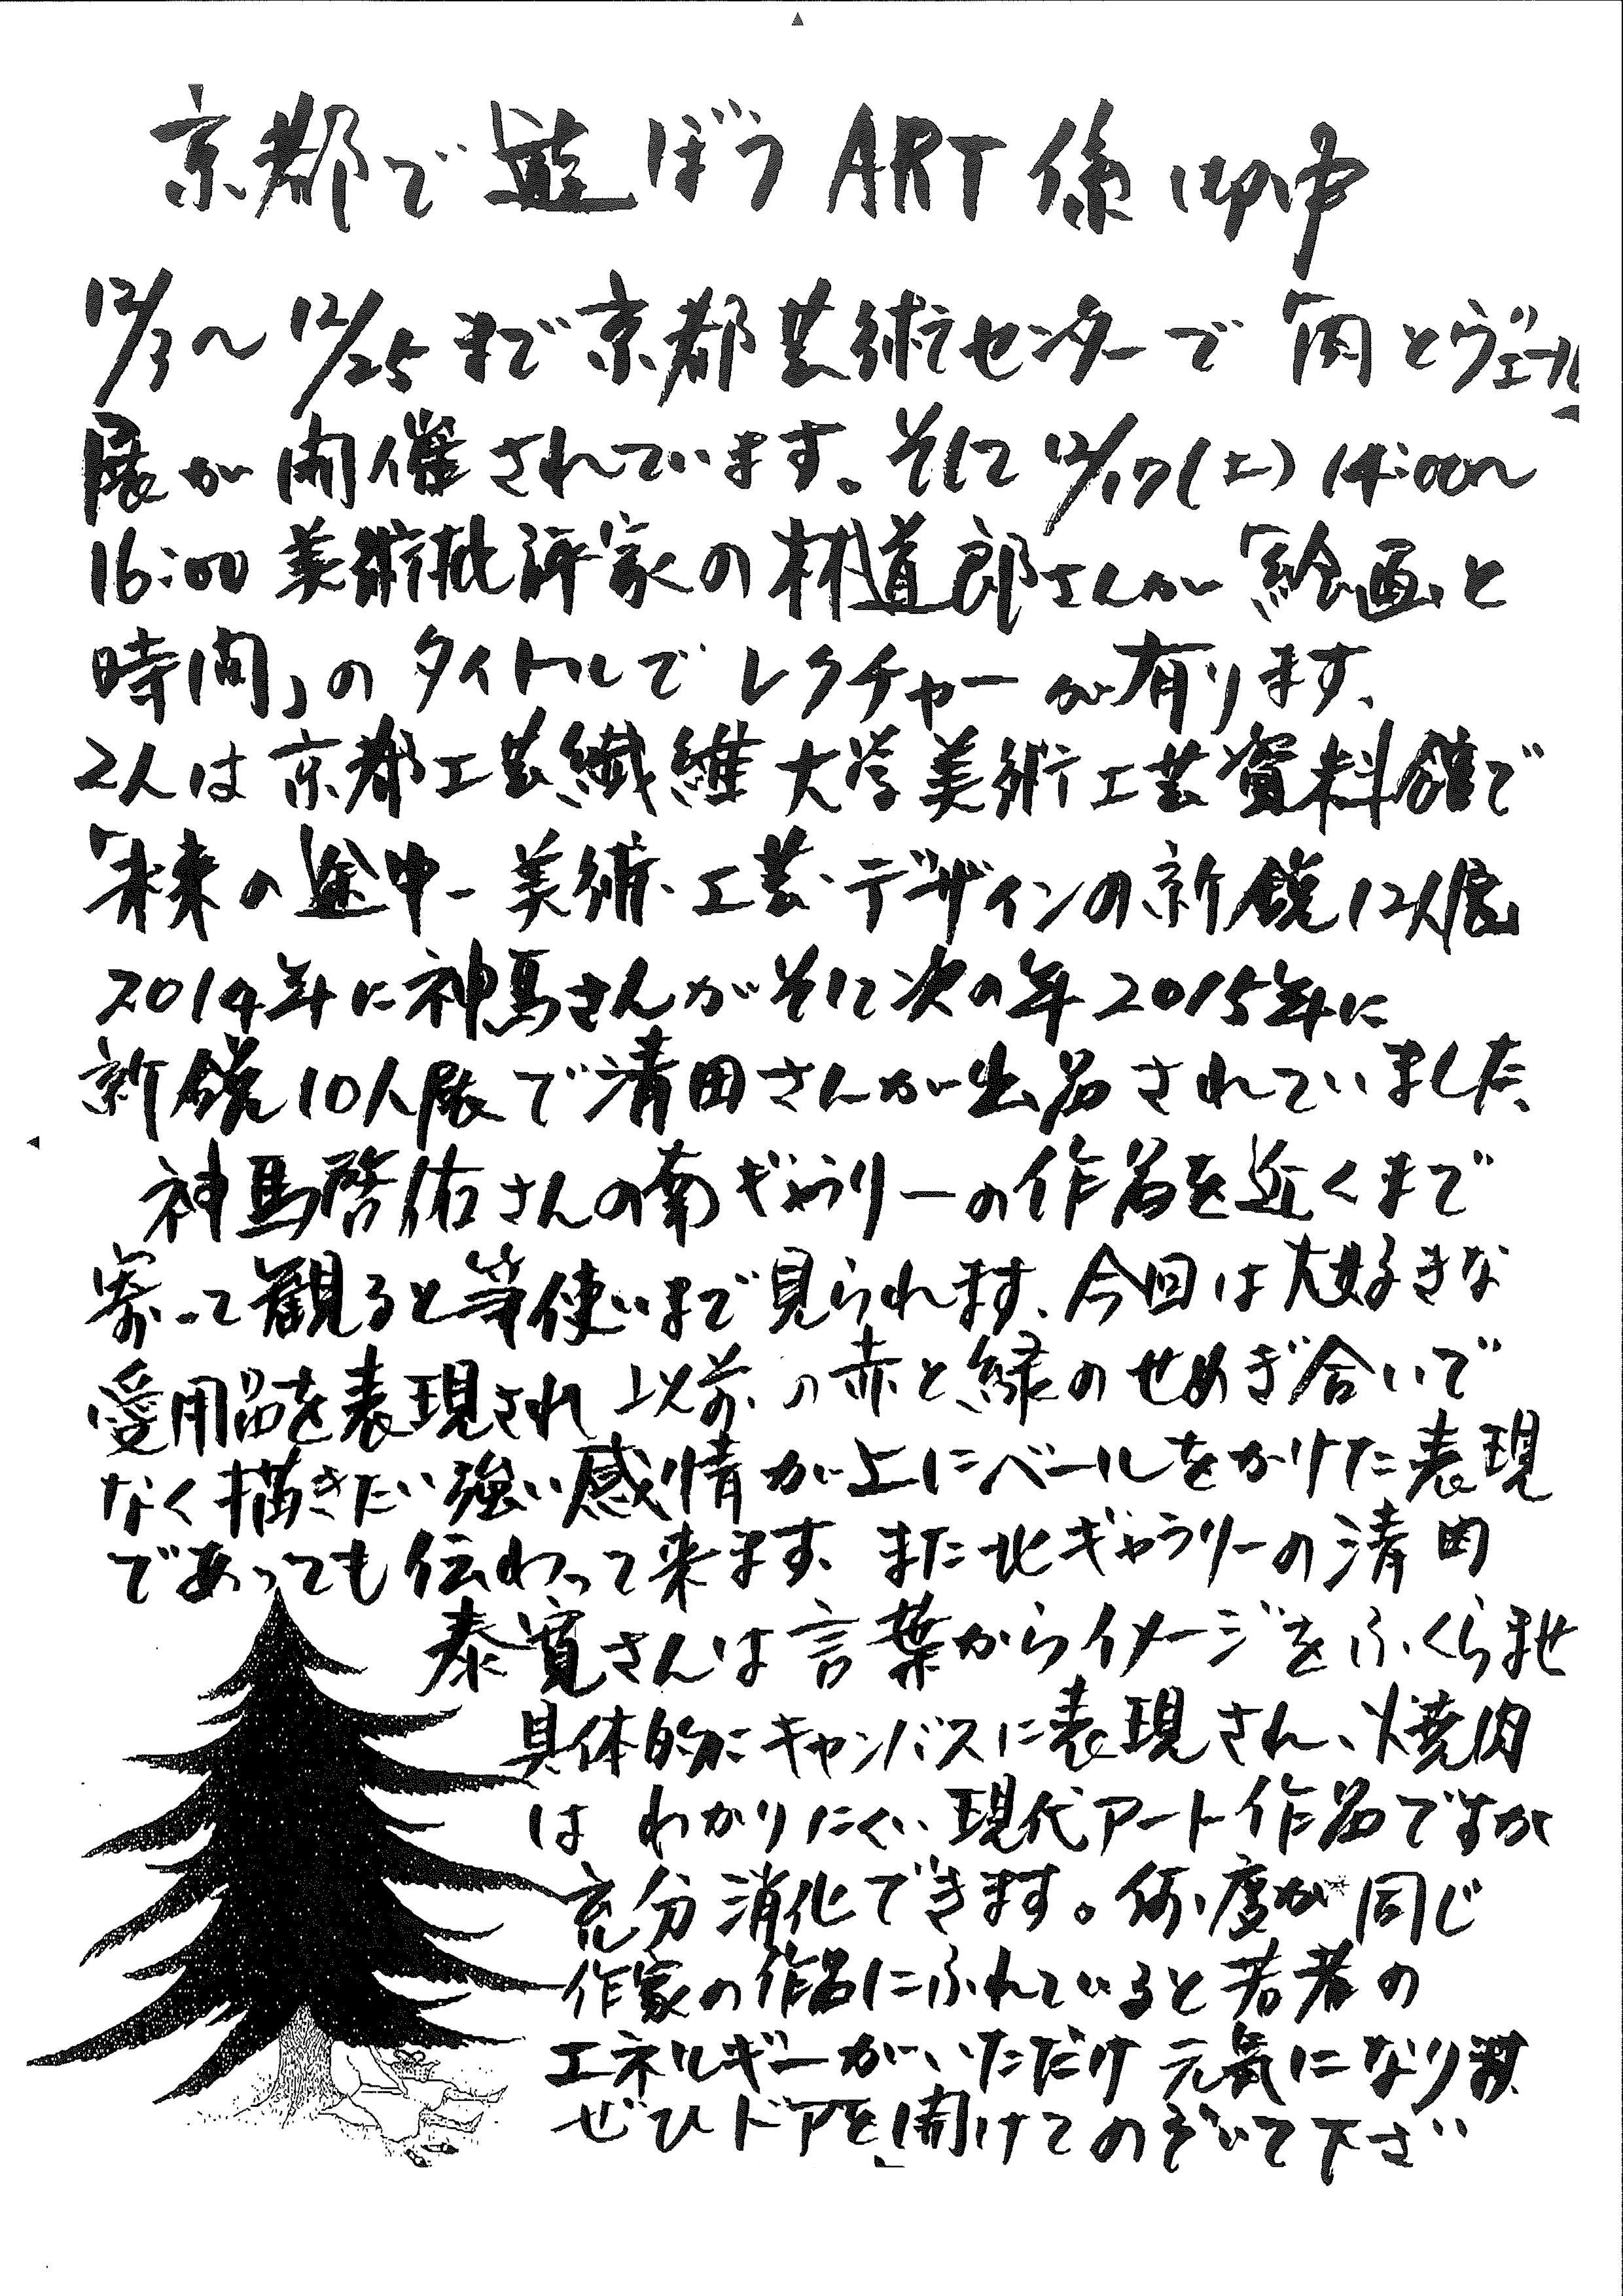 京都で遊ぼうART係御中
12/3〜12/25まで京都芸術センターで「肉とヴェール」
展が開催されています。そして12/17(土)14:00〜
16:00美術批評家の林道郎さんが「絵画と
時間」のタイトルでレクチャーが有ります、
2人は京都工芸繊維大学美術工芸資料館で
「未来の途中-美術・工芸・デザインの新鋭12人展」
2014年に神馬さんがそして次の年2015年に
新鋭10人展で清田さんが出品されていました、
神馬啓佑さんの南ギャラリーの作品を近くまで
寄って観ると筆使いまで見られます、今回は大好きな
愛用品を表現され以前の赤と緑のせめぎ合いで
なく描きたい強い感情が上にベールをかけた表現
であっても伝わって来ます、また北ギャラリーの清田
泰寛さんは言葉からイメージをふくらませ
具体的にキャンバスに表現され、焼肉
はわかりにくい現代アート作品ですが
充分消化できます。何度か同じ
作家の作品にふれていると若者の
エネルギーがいただけ元気になります、
ぜひドアを開けてのぞいて下さい